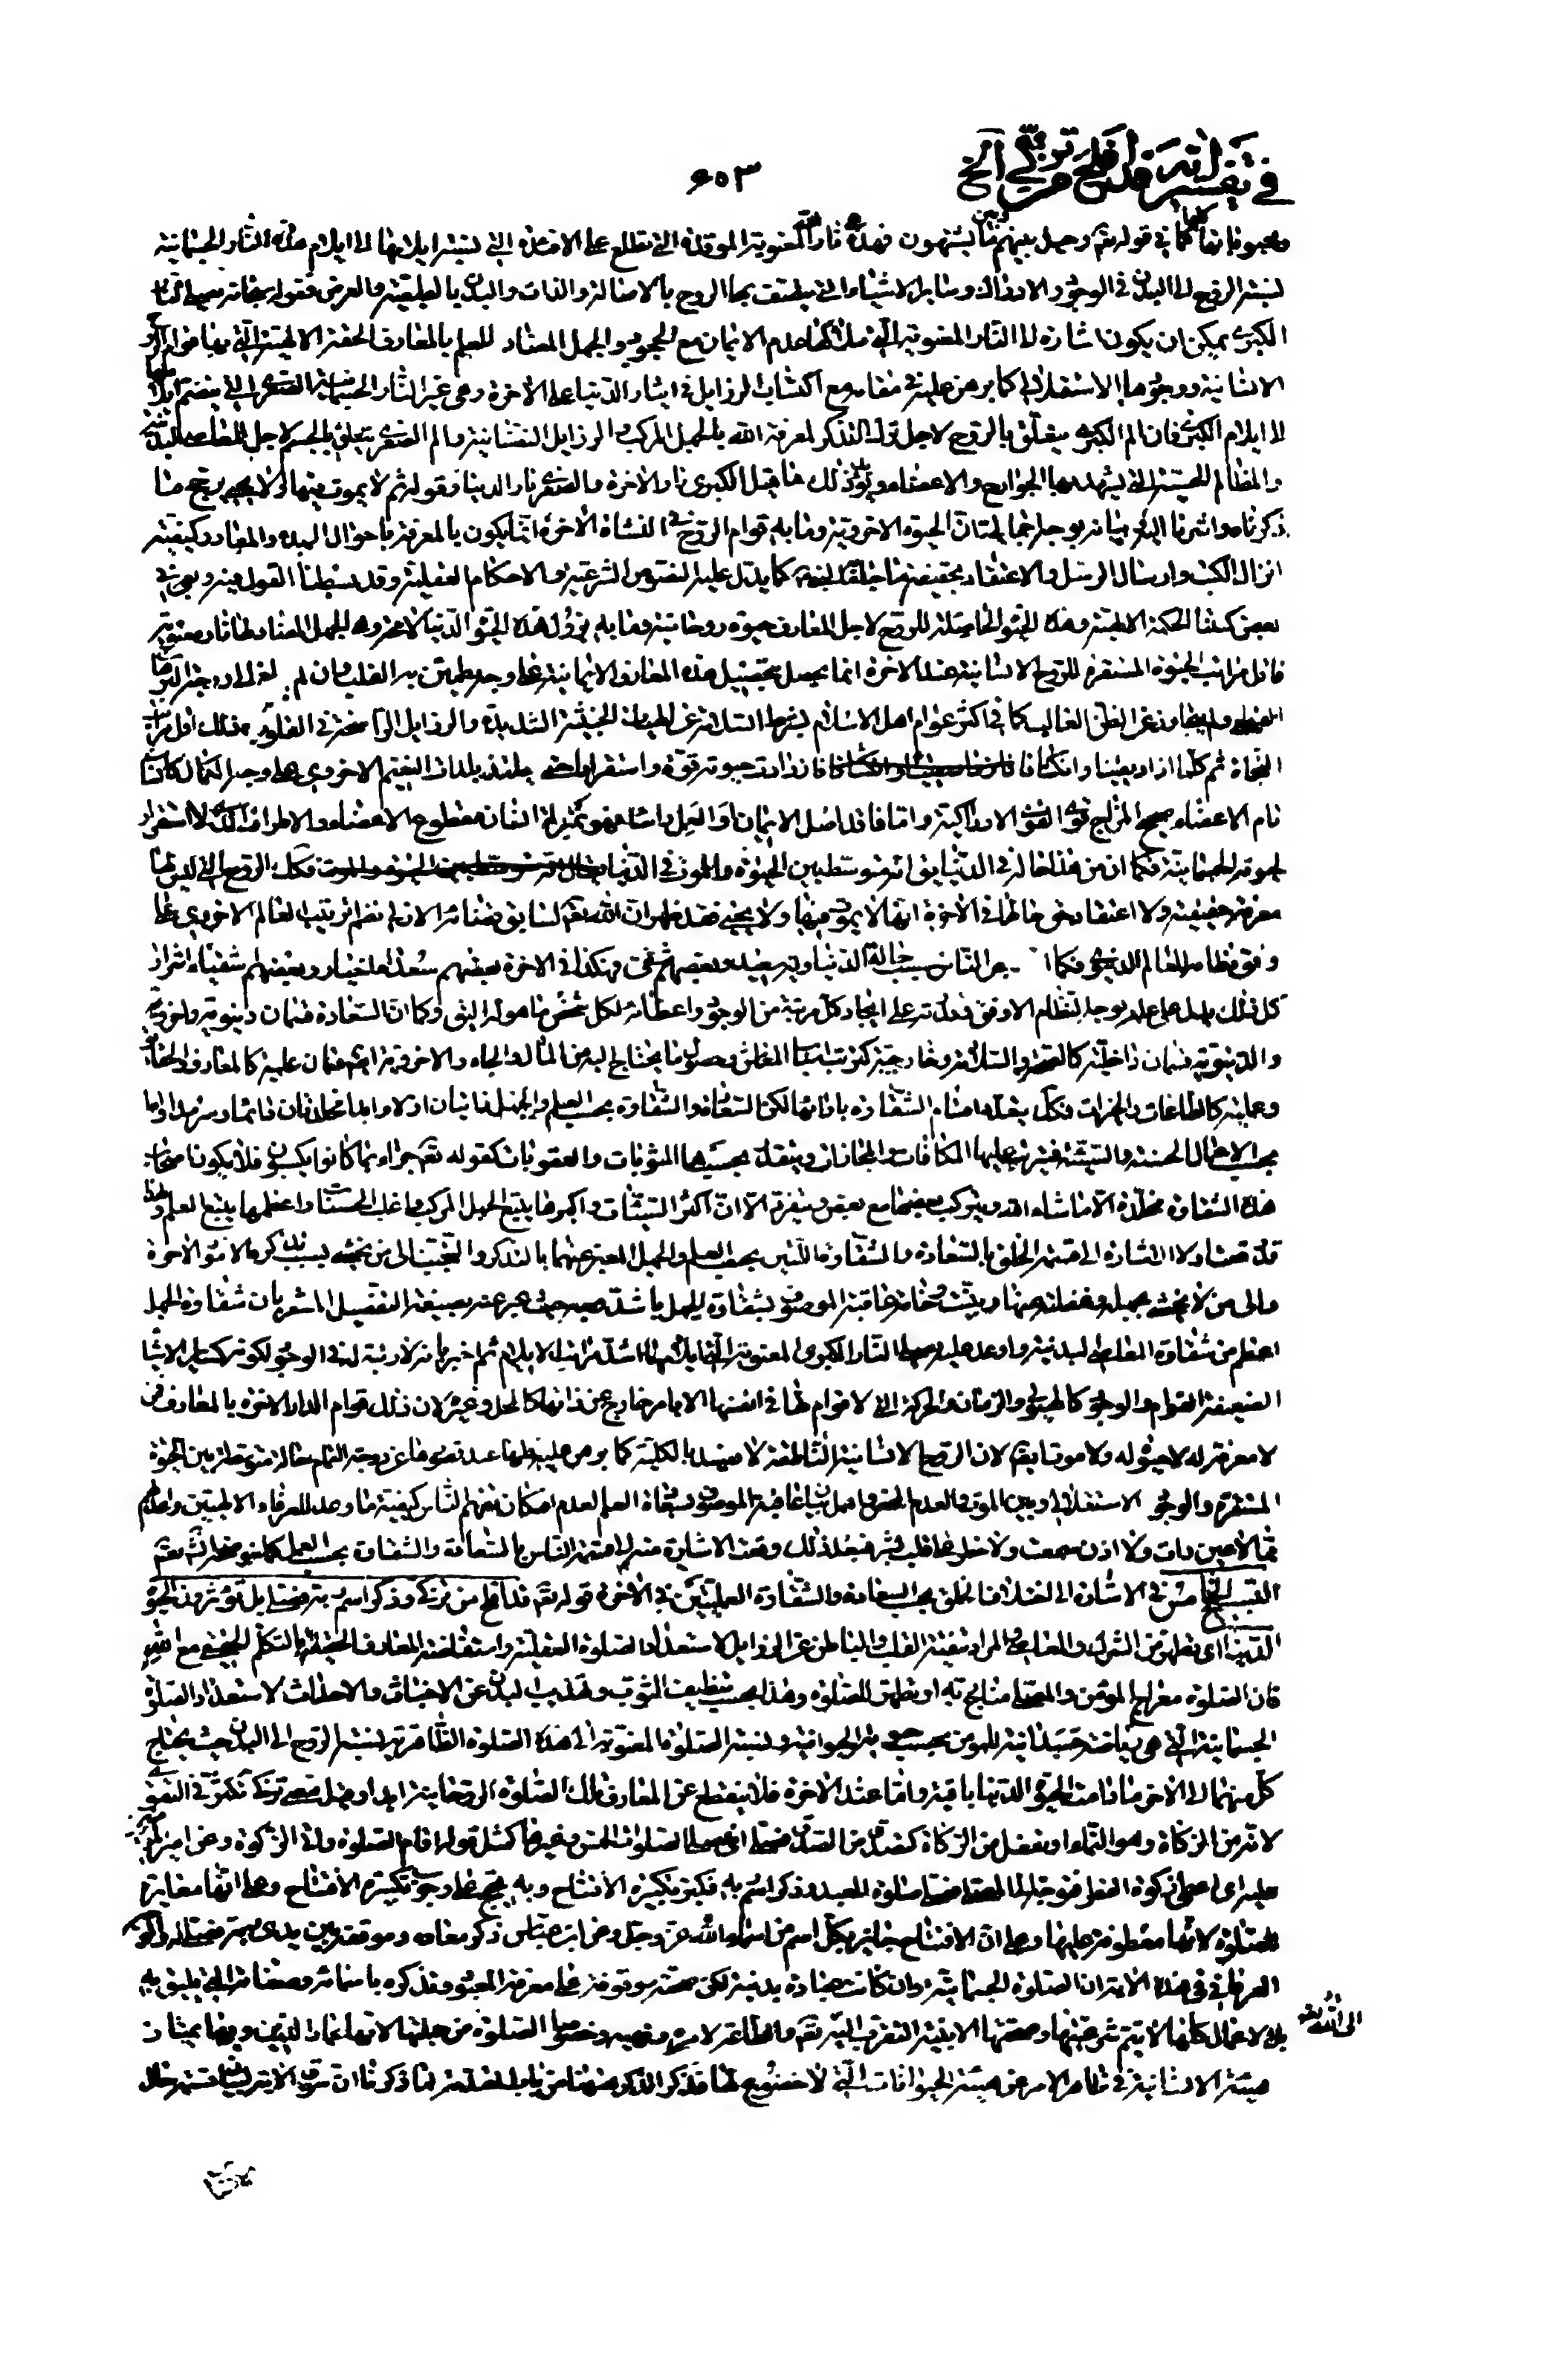 في تفسير قد افلح من تزكى الخ
۶۰۳
كما في قوله تعالى وحيل بينهم وبين ما يشتهون فهذه نار الله المعنوية الموقدة التي تطلع على الافئدة التي نسبة ايلامها الى ايلام هذه النار الجسمانية
نسبة الروح الى البدن في الوجود والادراك وسائر الاشياء التي يتصف بها الروح بالاصالة والذات والبدن بالتبعية والعرض فقوله سبحانه يصلى النار
الكبرى يمكن ان يكون اشارة الى النار المعنوية التي عدم الايمان مع الجحود والجهل المضاد للعلم بالمعارف الحقة الالهية التي بها قوام الروح
الانسانية ووجودها الاستقلالي كما برهن عليه في مقامه مع اكتساب الرذايل في ايثار الدنيا على الاخرة وهي غير النار الجسمانية الصغرى التي
الى ايلام الكبرى فان الم الكبرى يتعلق بالروح لاجل ترك التذكر لمعرفة الله بالجهل المركب والرذايل النفسانية والم الصغرى يتعلق بالجسم لاجل المعاصي البدنية
والمظالم الحسية التي يشهد بها الجوارح والاعضاء ويؤيد ذلك ما قيل الكبرى نار الاخرة والصغرى نار الدنيا وقوله ثم لا يموت فيها ولا يحيى يرجح ما
ذكرناه واشرنا الى بيانه بوجه اجمالي ان الحيوة الاخروية وما به قوام الروح في النشاة الاخرة انما يكون بالمعرفة باحوال المبدء والمعاد وكيفية
انزال الكتب وارسال الرسل والاعتقاد بحقيقتها كما يدل عليه النصوص الشرعية والاحكام العقلية وقد بسطنا القول فيه في
بعض كتبنا الحكمة الالهية وهذه الحيوة الحاصلة للروح لاجل المعارف حيوة روحانية وما به يزول هذه الحيوة الدنيا والاخرة هو الجهل المضاد لها نار معنوية
فاول مراتب الحيوة المستقرة للروح الانسانية عند الاخرة انما يحصل بتحصيل هذه المعارف الايمانية على وجه يطمئن به القلب وان لم
عن الظن الغالب كما في اكثر عوام اهل الاسلام بشرط السلامة عن الخبيثة الشديدة والرذايل الراسخة في القلوب فذلك اول مراتب
النجاة ثم كلما ازداد يقينا وانكشافا ازدادت حيوته قوة واستقرارا حتى يلتذ بلذات النعيم الاخروي على وجه الكمال كانسان
تام الاعضاء صحيح المزاج قوى القوى الادراكية واما فاقد اصل الايمان والعمل راسا فهو بمنزلة انسان مقطوع الاعضاء والاطراف الذي لا استقرار
لحيوته الجسمانية فكما ان من هذا حاله في الدنيا يق انه متوسط بين الحيوة والموت في الدنيا فكك الروح التي ليس لها
معرفة حقيقية ولا اعتقاد حق حالها في الاخرة انها لا يموت فيها ولا يحيى فقد ظهر ان الله تعالى لسابق قضائه الازلي نظم ترتيب العالم الاخروي على
وفق نظام العالم الدنيوي فكما الناس بسبب حالة الدنياوية سعيد وبعضهم شقي فهكذا في الاخرة بعضهم سعداء اخيار وبعضهم اشقياء اشرار
كل ذلك يدل على علمه بوجه النظام الاوفق قدرته على ايجاد كل مرتبة من الوجود واعطائه لكل شخص ما هو له اليق وكما ان السعادة قسمان دنيوية واخروية
والدنيوية قسمان داخلية كالصحة والسلامة وخارجية كترتب اسباب المعاش وحصول ما يحتاج اليه من المال والجاه والاخروية ايضا قسمان علمية كالمعارف والحقايق
وعملية كالطاعات والخيرات فكك يقابلها اقسام الشقاوة بازائها لكن السعادة والشقاوة بحسب العلم والجهل ذاتيان ازلا وابدا مخلدتان دائما وسرمدا واما
بحسب الاعمال الحسنة والسيئة فيترتب عليها المكافات والمجازات ويتقدر بحسبها المثوبات والعقوبات كقوله تعالى جزاء بما كانوا يكسبون فلا يكون
هذه الشقاوة مخلدة الا ما شاء الله ويتركب بعضها مع بعض ويفترق الا ان اكثر السيئات واكبرها يتبع الجهل المركب واغلب الحسنات واعظمها يتبع العلم ولهذا
قد وقعت اولا الاشارة الى قسمة الخلق بالسعادة والشقاوة اللتين بحسب العلم والجهل المعبر عنهما بالتذكر والتجنب الى من يخشى بسبب تذكره لامور الاخرة
والى من لا يخشى بجهله وغفلته عنها وبينت وخامة عاقبة الموصوف بشقاوة الجهل باشد حيث عبر عنه بصيغة التفضيل المشعر بان شقاوة الجهل
اعظم من شقاوة المعاصي البدنية واوعد عليه بصلى النار الكبرى المعنوية التي ايلامها اشد مراتب الايلام ثم اخبر بانه لا رتبة له في الوجود لكونه كسائر الاشياء
الضعيفة القوام والوجود كالهيولى والزمان والحركة التي لا قوام لها في انفسها الا بامر خارج عن ذاتها كالمحل وغيره لان ذلك قوام الدار الاخرة بالمعارف فمن
لا معرفة له لا حيوة له ولا موتا ايضا لان الروح الانسانية الناطقة لا يفسد بالكلية كما برهن عليه فلها عند نقصها عن درجة التمام حالة متوسطة بين الحيوة
المستقرة والوجود الاستقلالي وبين الموت والعدم المحض واهمل بيان عاقبة الموصوف بسعادة العلم لعدم امكان تفهيم الناس كيفية ما وعد للعرفاء الالهيين واعد لهم
مما لا عين رات ولا اذن سمعت ولا خطر على قلب بشر فبعد ذلك وقعت الاشارة منه الى قسمة الناس بالسعادة والشقاوة بحسب العمل كما
التسبيح الخامس في الاشارة الى اختلاف الخلق بحسب السعادة والشقاوة العمليتين في الاخرة قوله تعالى قد افلح من تزكى وذكر اسم ربه فصلى بل تؤثرون الحيوة
الدنيا اى تطهر من الشرك والمعاصي والمراد تنقية القلب والباطن عن الرذايل لاستعداد الصلوة العقلية واستفاضة المعارف الحقيقية والتكلم الحقيقي مع الله
فان الصلوة معراج المؤمن والمصلى مناج ربه او تطهر للصلوة وهذا بحسب تنظيف الثوب وتهذيب البدن عن الاخباث والاحداث لاستعداد الصلوة
الجسمانية التي هي رياضة جسدانية للمؤمن بحسب الحيوانية ونسبة الصلوة المعنوية الى هذه الصلوة الظاهرية نسبة الروح الى البدن حيث يحتاج
كل منهما الى الاخر ما دامت الحيوة الدنيا باقية واما عند الاخرة فلا ينقطع عن العارف تلك الصلوة الروحانية ابدا وقيل تزكى تكثر في التقوى
لانه من الزكاة وهو النماء او تفعل من الزكاة كتصدق من الصدقة فصلى اى الصلوات الخمس وغيرها كمثل قوله اقام الصلوة واتى الزكوة وعن امير المؤمنين
عليه السلام اى اعطى زكوة الفطر فتوجه الى المصلى فصلى صلوة العيد وذكر اسم ربه فكبر تكبيرة الافتتاح وبه يحتج على وجوب تكبيرة الافتتاح وعلى انها مغايرة
للصلوة لانها معطوفة عليها وعلى ان الافتتاح جايز بكل اسم من اسماء الله عز وجل وعن ابن عباس ذكر معاده وموقفه بين يدى ربه فصلى له
العرفاني في هذه الاية ان الصلوة الجسمانية وان كانت عبادة بدنية لكن صحته موقوفة على معرفة المعبود وتذكره باسمائه وصفاته التي يليق به
بل الاعمال كلها لا يتم شرعيتها وصحتها الا بنية التقرب اليه تعالى والطاعة لامره ونهيه وخصوصا الصلوة من جملتها لانها عماد الدين وبها يمتاز
الى الله
هيئة الانسانية في ظاهر الامر عن هيئة الحيوانات التي لا خضوع لها فذكر الذكر ههنا من لما ذكرنا ان سوق الاية قسمة حال